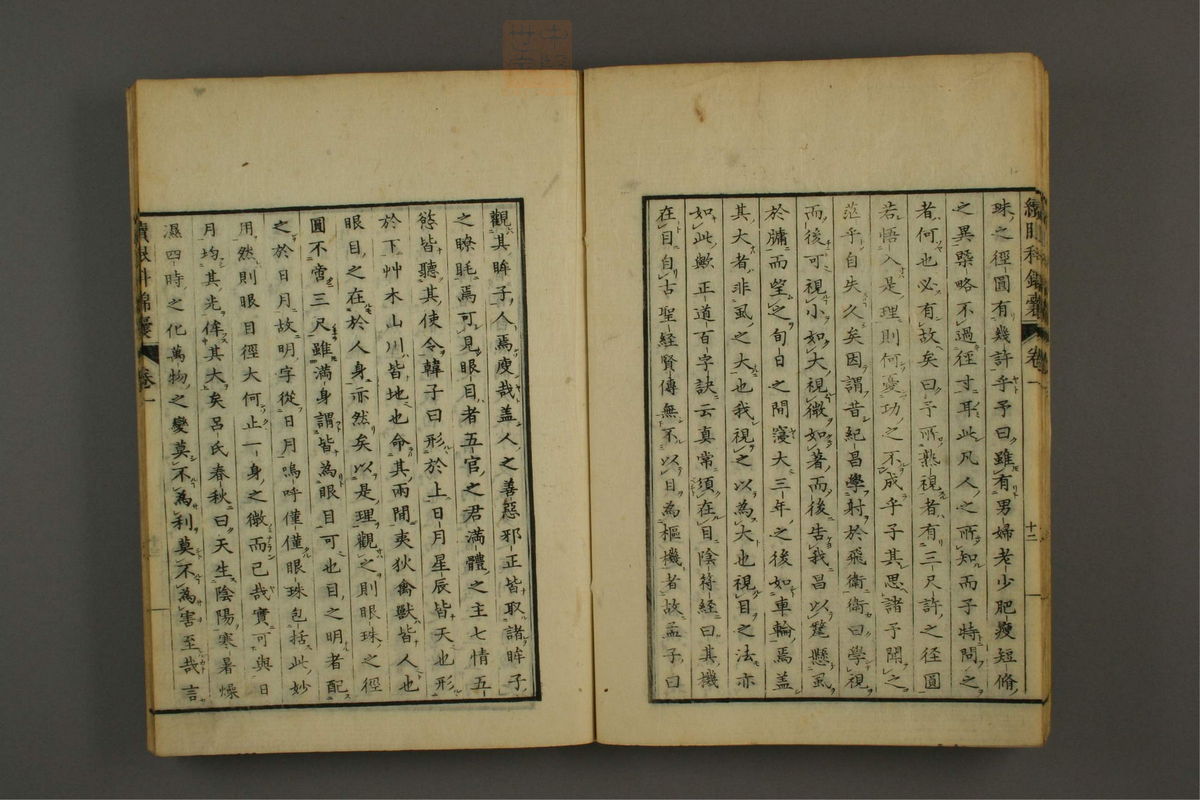 續眼科錦囊 卷一 十二
珠之徑圓有幾許乎予曰雖有男婦老少肥瘦短脩
之異槩略不過徑寸耳此凡人之所知而子特問之
者何也必有故矣曰予所熟視者有三尺許之徑圓
若悟入是理則何憂功之不成乎子其思諸予聞之
茫乎自失久矣因謂昔紀昌學射於飛衛衛曰學視
而後可視小如大視微如著而後告我昌以氂懸虱
於牖而望之旬日之間寖大三年之後如車輪焉蓋
其大者非虱之大也我視之以為大也視目之法亦
如此歟正道百字訣云真常須在目陰符經曰其機
在目自古聖經賢傳無不以目為樞機者故孟子曰
觀其眸子人焉廋哉蓋人之善惡邪正皆取諸眸子
之瞭眊焉可見眼目者五官之君滿體之主七情五
慾皆聽其使令韓子曰形於上日月星辰皆天也形
於下艸木山川皆地也命其兩間夷狄禽獸皆人也
眼目之在於人身亦然矣以是理觀之則眼珠之徑
圓不啻三尺雖滿身謂皆為眼目可也目之明者配
之於日月故明字從日月嗚呼僅僅眼珠包括此妙
用然則眼目徑大何止一身之微而已哉實可與日
月均其光侔其大矣呂氏春秋曰天生陰陽寒暑燥
濕四時之化萬物之變莫不為利莫不為害至哉言
續眼科錦囊 卷一